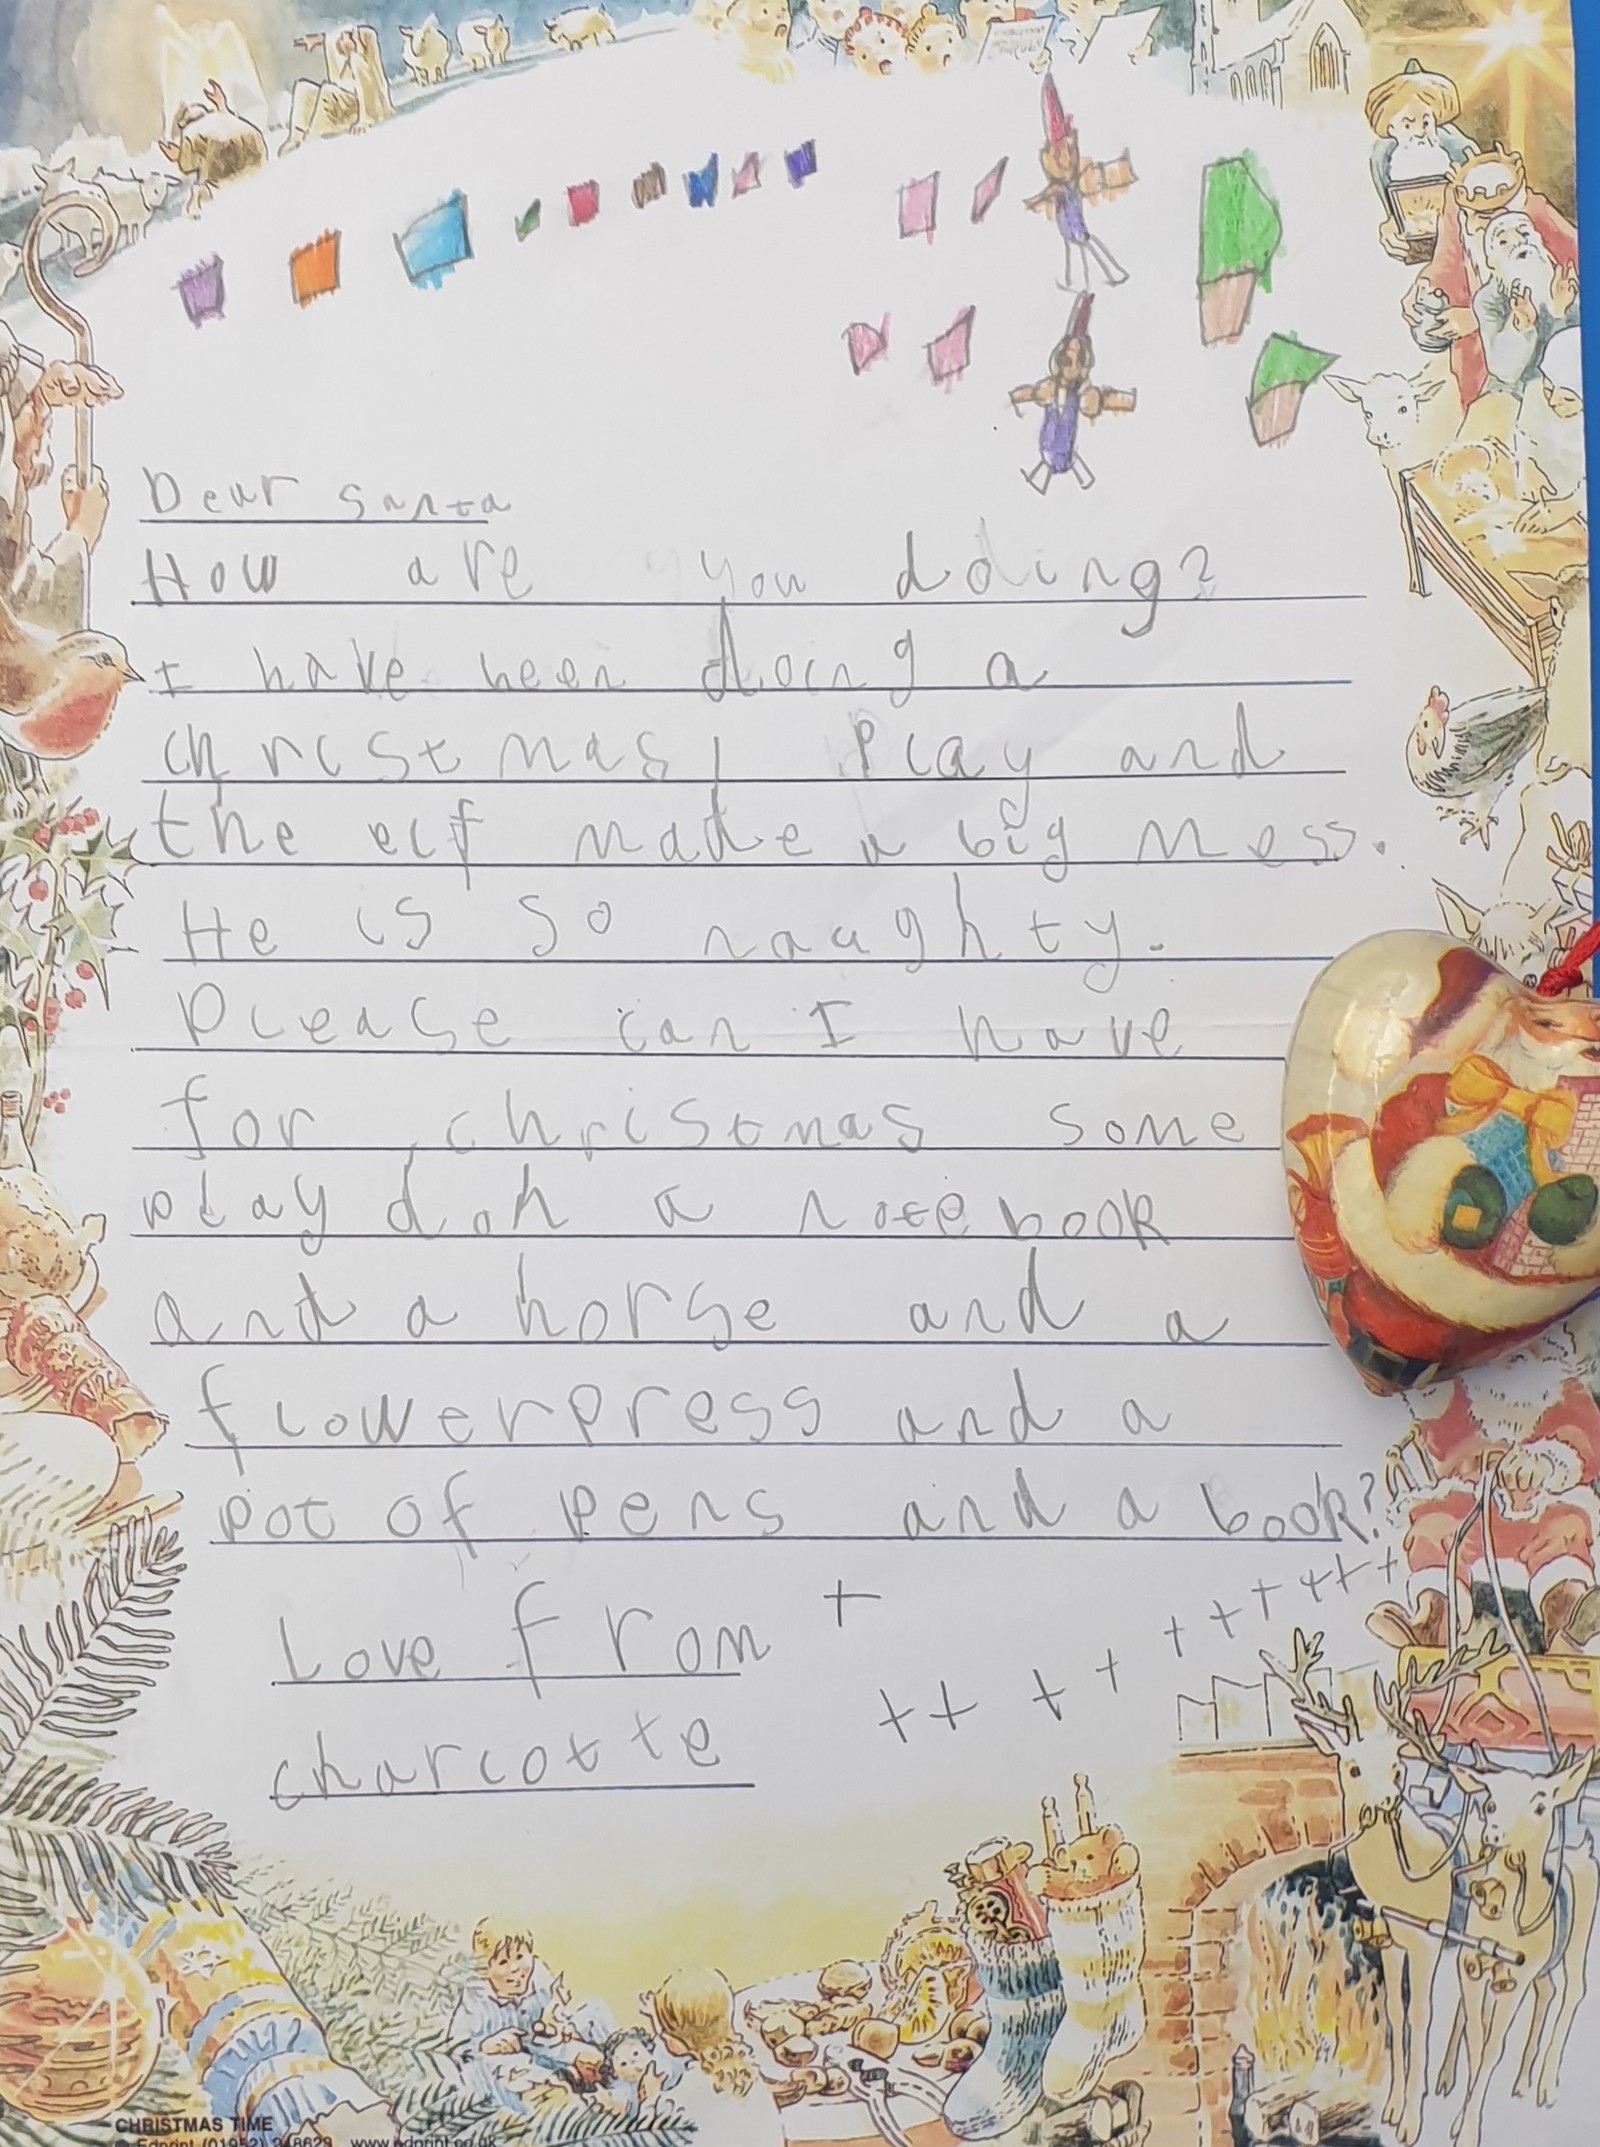 Dear santa
How are you doing?
I have been doing a
christmas play and
the elf made a big mess.
He is so naughty.
please can I have
for christmas some
play doh a notebook
and a horse and a
flowerpress and a
pot of pens and a book?
Love from +
++ + + + + + + + +
charlotte
CHRISTMAS TIME
© Edprint (01952) 348623 www.edprint.co.uk